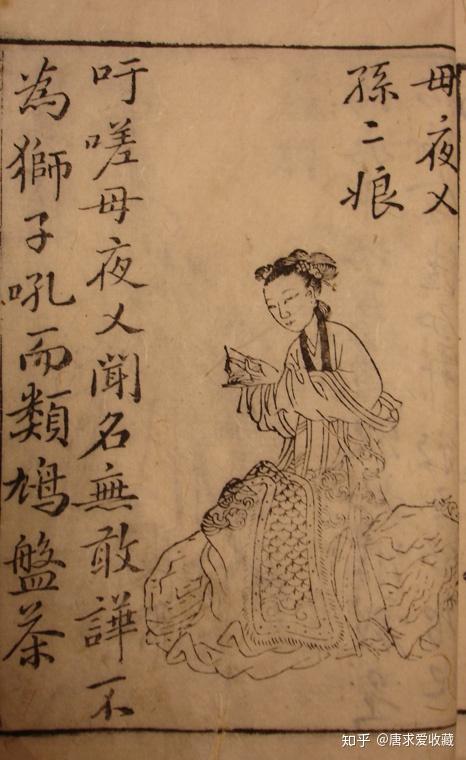 毋夜乂
孫二娘
吁嗟毋夜乂聞名無敢譁不
為獅子吼而類鳩盤茶
知乎 @唐求爱收藏